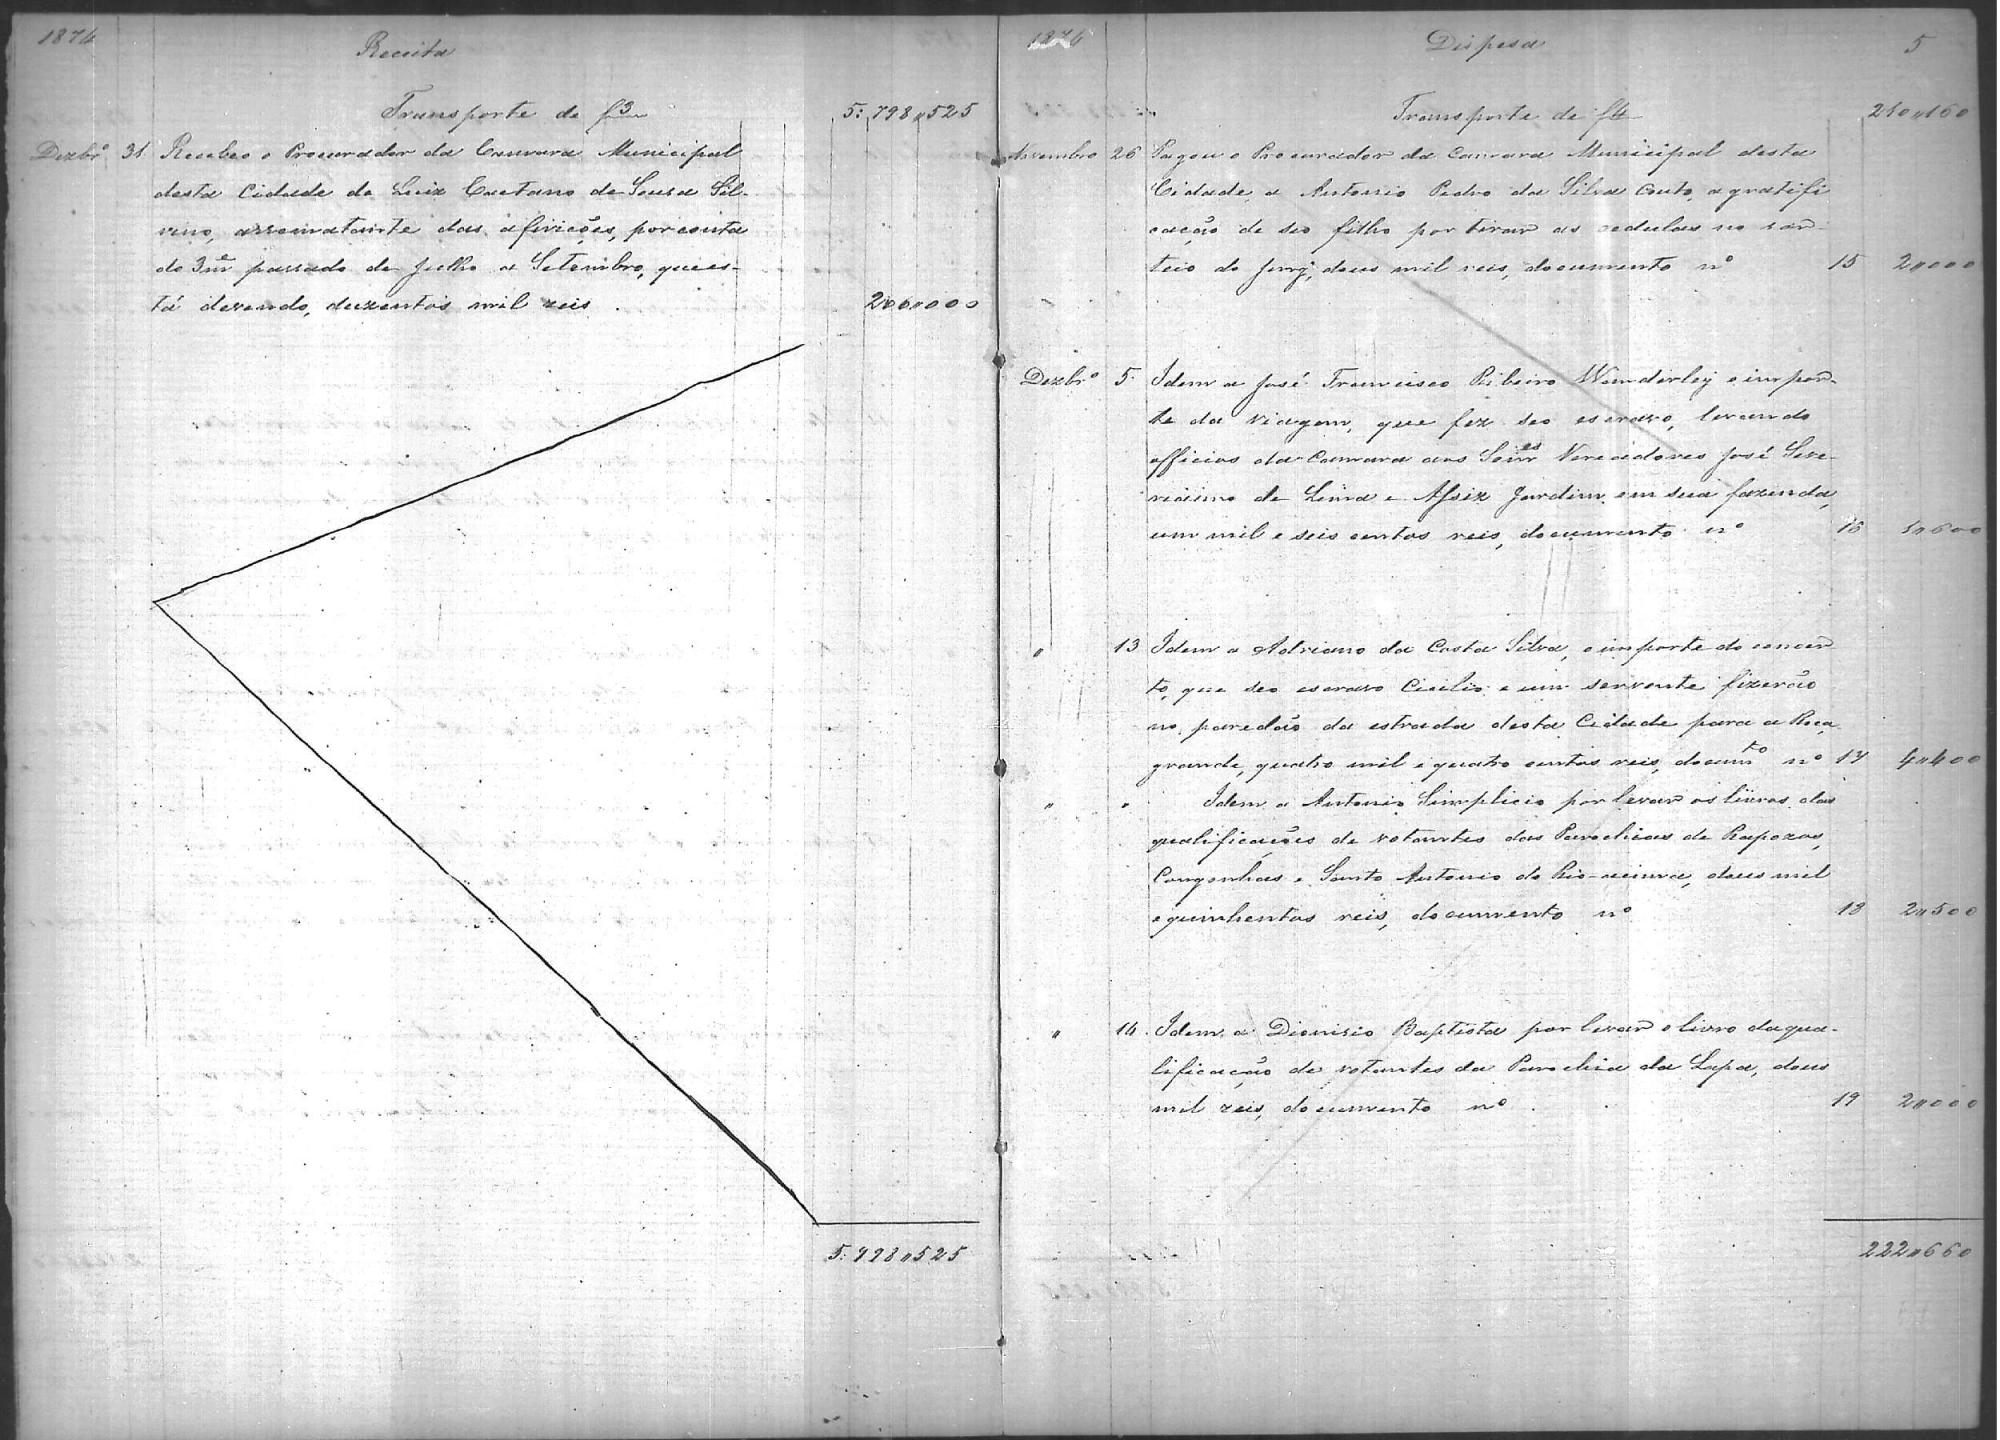 1876
Receita
Transporte de f 3 5:798,,525
Dezbrº 31 Recebeo o Procurador da Camara Municipal
desta Cidade de Luiz Caetano de Sousa Sil-
vino, arrematante das afirições, por conta
do 3me passado de Julho a Setembro, que es-
tá devendo, duzentos mil reis . 200,,000
5:998,,525
1876 Despesa 5
Transporte de f4 210,,160
Novembro 26 Pagou o Procurador da Camara Municipal desta
Cidade, a Antonio Pedro da Silva Couto, a gratifi
cação de seo filho por tirar as cedulas no sor-
teio do Jury, dous mil reis, documento nº 15 2,,000
Dezbrº 5 Idem a José Francisco Ribeiro Wanderley o impor-
te da viagem, que fez seo escravo, levando
officios da Camara aos Senres Vereadores José Seve-
rianno de Lima e Assiz Jardim em sua fazenda,
um mil e seis centos reis, documento nº 16 1,,600
" 13 Idem a Adriano da Costa Silva, o importe do concer
to, que seo escravo Cicilio e um servente fizerão
no paredão da estrada desta Cidade para a Roça
grande, quatro mil e quatro centos reis, documto nº 17 4,,400
" " Idem a Antonio Simplicio por levar os livros das
qualificações de votantes das Parochias de Rapozos,
Congonhas e Santo Antonio do Rio-acima, dous mil
e quinhentos reis, documento nº 18 2,,500
" 14 Idem a Dionisio Baptista por levar o livro da qua-
lificação de votantes da Parochia da Lapa, dous
mil reis, documento nº . 19 2,,000
222,,660